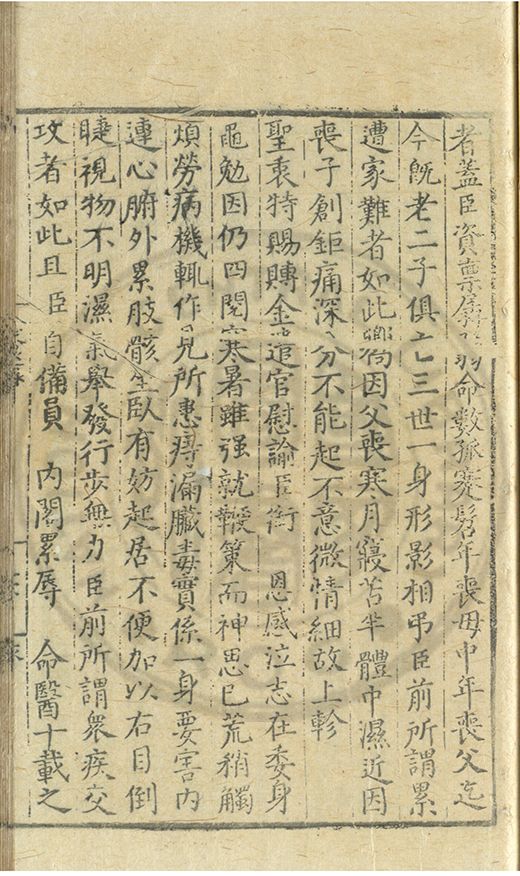 者蓋臣資稟孱弱命數孤蹇髫年喪母中年喪父迄
今既老二子俱亡三世一身形影相弔臣前所謂累
遭家難者如此嚮因父喪寒月寢苫半體中濕近因
喪子創鉅痛深分不能起不意微情細故上軫
聖衷特賜賻金遣官慰諭臣銜 恩感泣志在委身
黽勉因仍四閱寒暑雖强就鞭策而神思已荒稍觸
煩勞病機輒作見所患痔漏臟毒實係一身要害內
連心腑外累肢骸坐臥有妨起居不便加以右目倒
睫視物不明濕氣舉發行步無力臣前所謂衆疾交
攻者如此且臣自備員 內閣累辱 命醫十載之